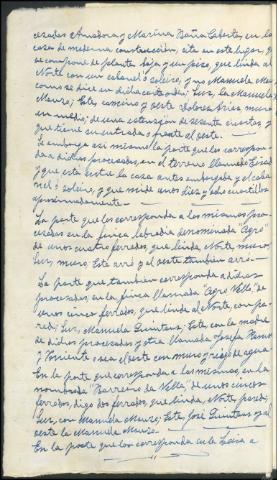 cesadas Amadora y Marina Baña Caberta, en la
casa de moderna construcción, sita en este lugar, que
se compone de planta baja y un piso, que linda al
Norte con un cabanel o soleiro, y no Manuela Mau-
como se dice en dicha contrada; Sur, la Manuela
Mauro; Este, camino y oeste Dolores Arias muro
en medio; de una extensión de sesenta cuartos, y
que tiene su entrada o frente al oeste.
Se embarga así mismo la parte que les correspon-
da a dichos procesados, en el terreno llamado
y que está sito a la casa antes embargada y el caba-
nel o soleiro, y que mide unos diez y ocho cuartillos
aproximadamente
La parte que les corresponda a los mismos proce-
sados en la finca labradía denominada "Agro"
de unos cuatro ferrados, que linda, Norte, muro;
Sur, muro, Este arró y al oeste tambien arró.
La parte que tambien corresponda a dichos
procesados en la finca llamada "Agro Vello," de
unos cinco ferrados, que linda al Norte, con pa-
red; Sur, Manuela Quintans; Este, con la madre
de dichos procesados y otra llamada Josefa Ramos
y Torriente o sea el oeste con muro y riego de agua
En la parte que corresponda a los mismos, en la
nombrada "Barreiro da Vella," de unos cinco
ferrados, digo dos ferrados, que linda, Norte, pared;
Sur, con Manuela Mauro; Este, José Quintans y al
oeste la Manuela Mauro.
En la parte que les corresponda en la Leira a